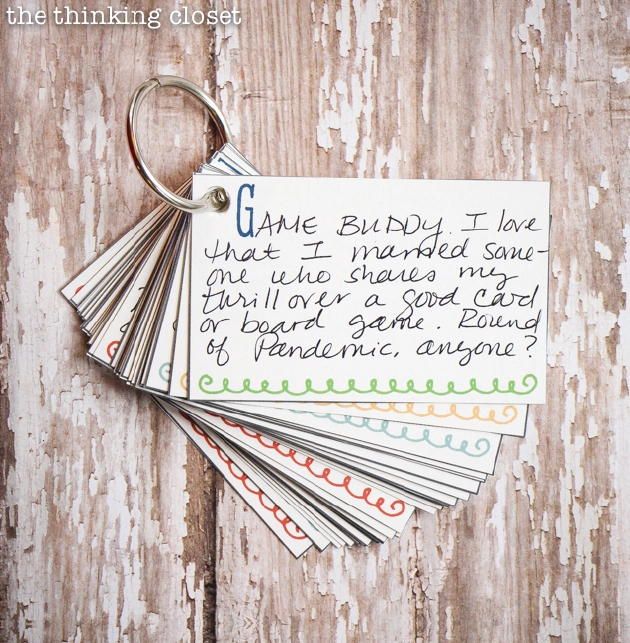 the thinking closet
GAME BUDDY. I love
that I married some-
one who shares my
thrill over a good card
or board game. Round
of Pandemic, anyone?